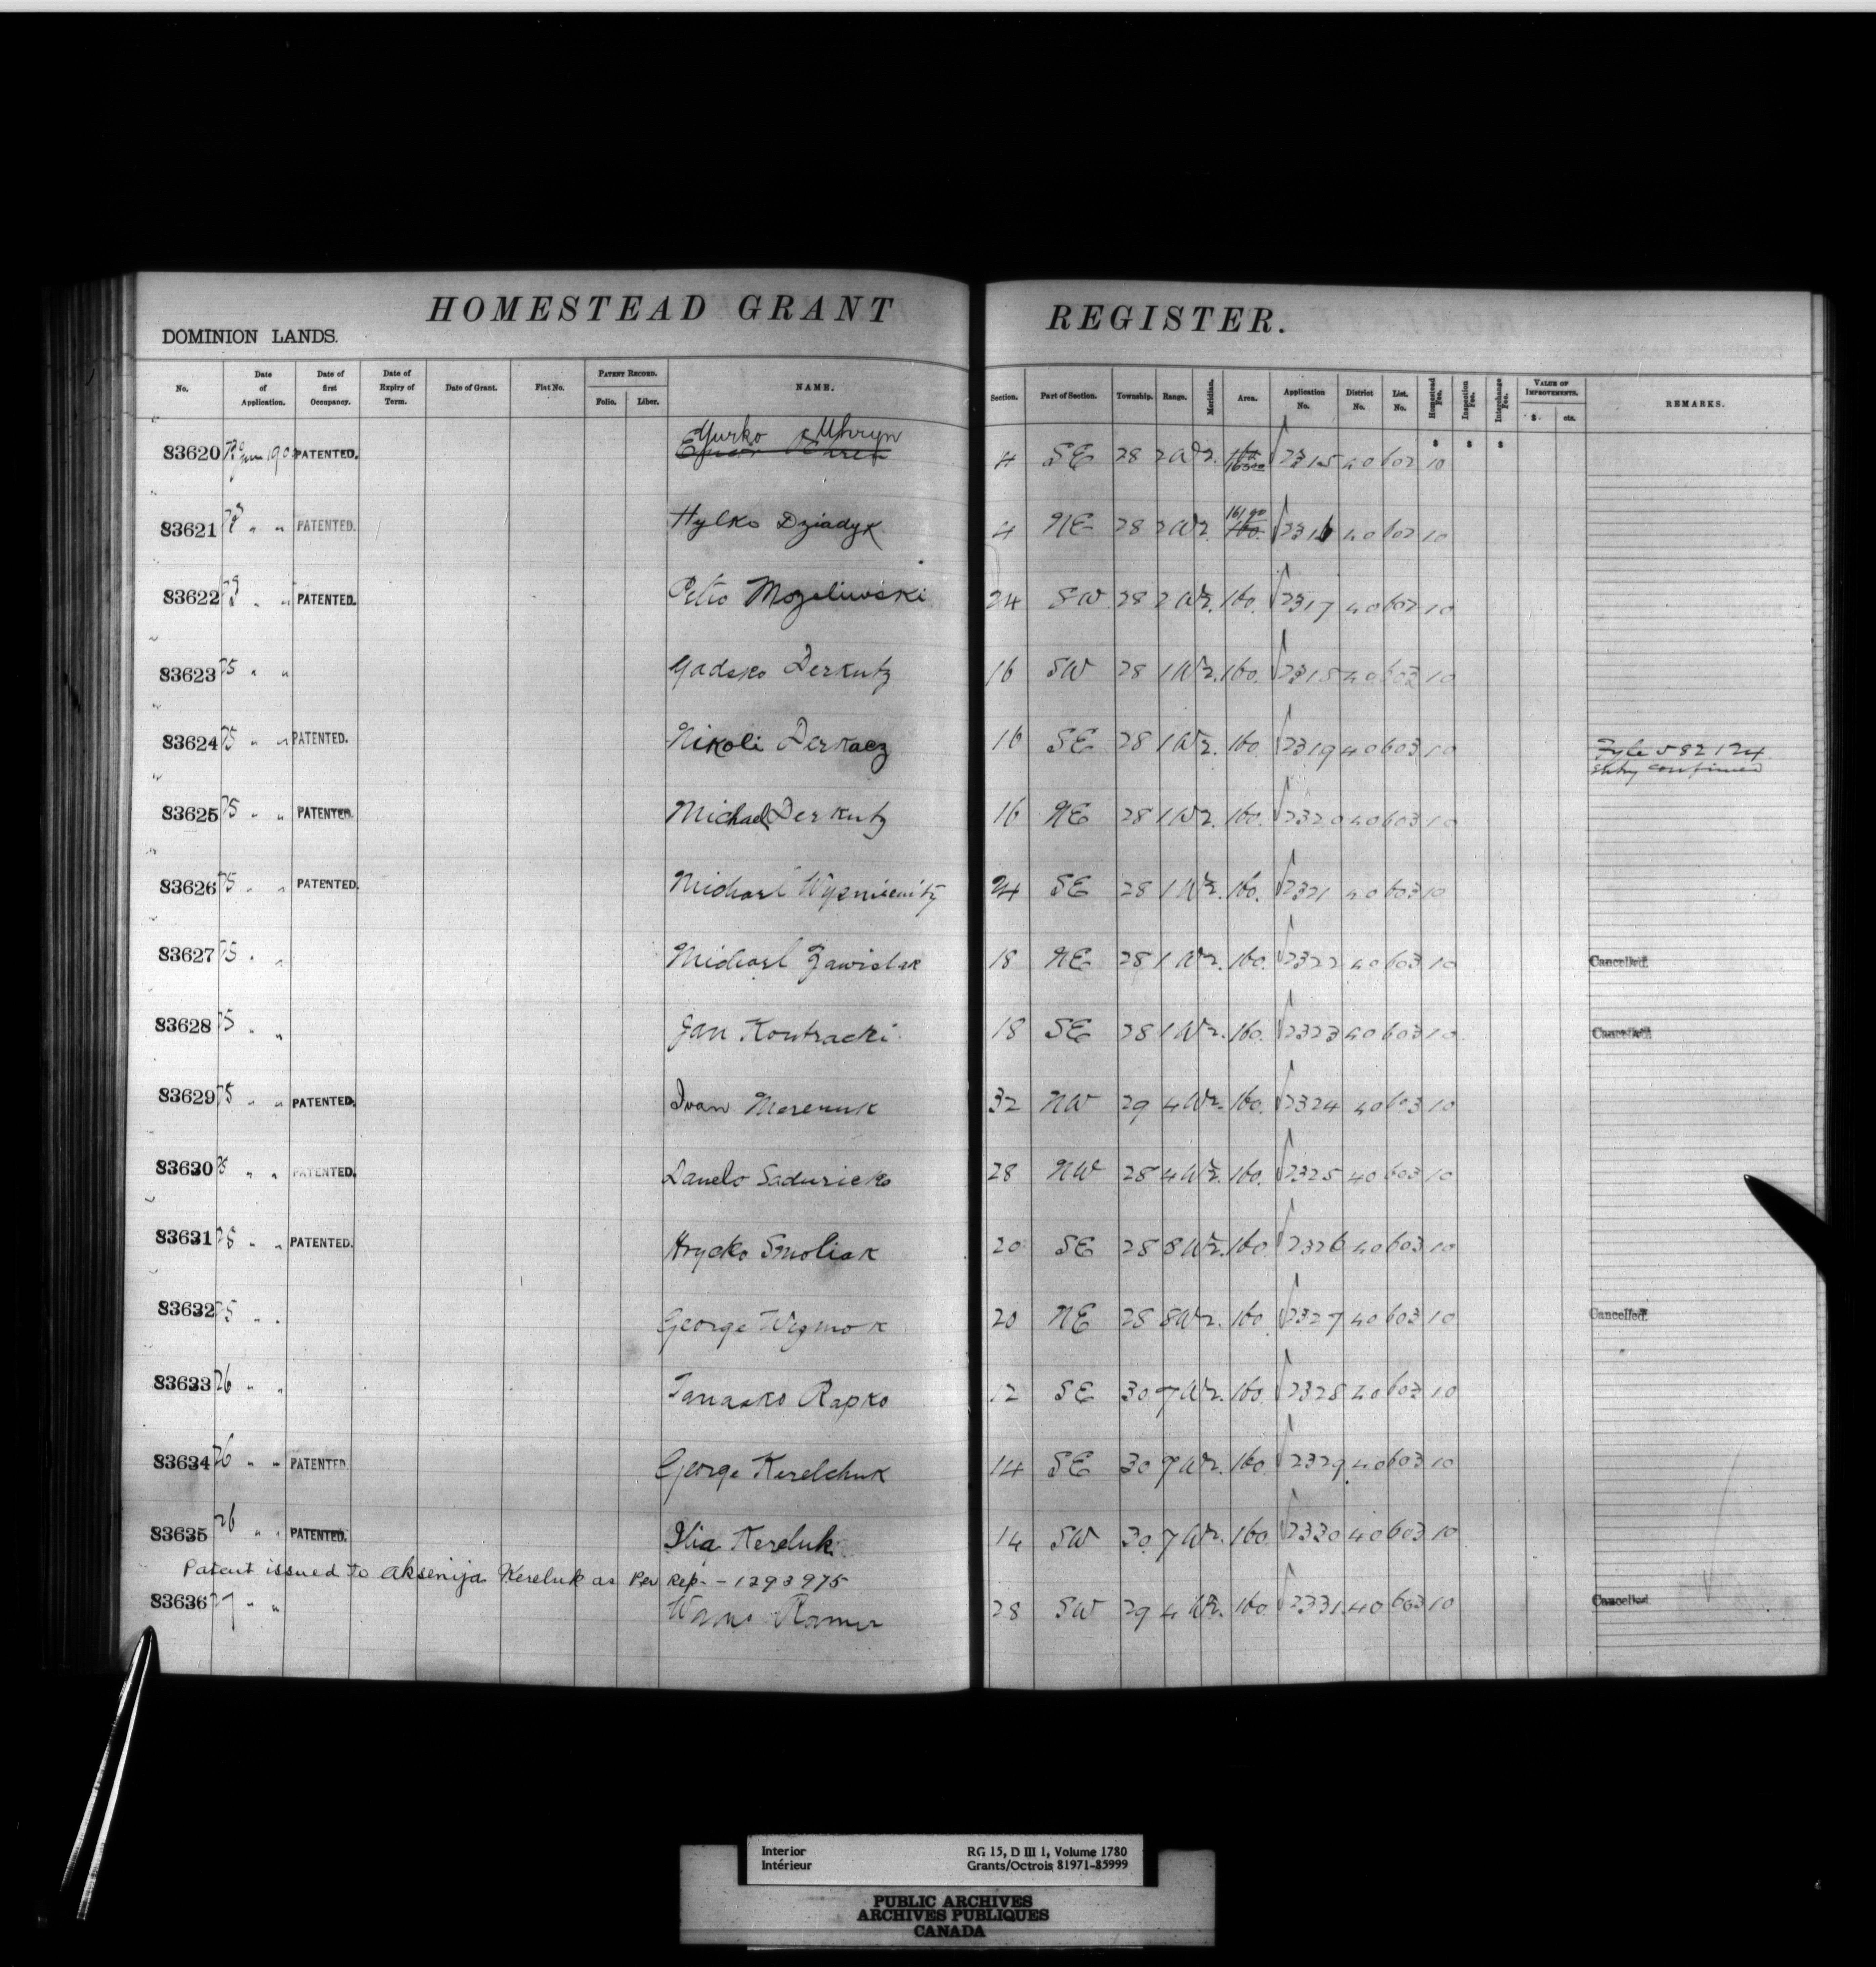 HOMESTEAD GRANT REGISTER.
DOMINION LANDS.
No. Date of Application. Date of first Occupancy. Date of Expiry of Term. Date of Grant. Fiat No. PATENT RECORD. Folio. Liber. NAME. Section. Part of Section. Township. Range. Meridian. Area. Application No. District No. List. No. Homestead Fee. Inspection Fee. Interchange Fee. VALUE OF IMPROVEMENTS. $. cts. REMARKS.
83620 PATENTED. Yurko Uhryn 4 SE 28 2 W2. 160 2315 40 602 10
83621 " " PATENTED. Hylko Dziadyk 4 NE 28 2 W2. 160. 2316 40 602 10
83622 " " PATENTED. Petro Mozeliuoski 24 SW 28 2 W2. 160. 2317 40 602 10
83623 25 " " Gadsko Derkutz 16 SW 28 1 W2. 160. 2318 40 603 10
83624 25 " " PATENTED. Nikoli Derkacz 16 SE 28 1 W2. 160 2319 40 603 10 Fyle 582124 entry confirmed
83625 25 " " PATENTED. Michael Derkutz 16 NE 28 1 W2. 160. 2320 40 603 10
83626 25 " " PATENTED. Michael 24 SE 28 1 W2. 160. 2321 40 603 10
83627 25 " " Michael Zawislak 18 NE 28 1 W2. 160. 2322 40 603 10 Cancelled.
83628 25 " " Jan Kontracki 18 SE 28 1 W2. 160. 2323 40 603 10 Cancelled.
83629 25 " " PATENTED. Ivan 32 NW 29 4 W2. 160. 2324 40 603 10
83630 25 " " PATENTED. Danelo Saduricko 28 NW 28 4 W2. 160. 2325 40 603 10
83631 25 " " PATENTED. Hrycko Smoliak 20 SE 28 8 W2. 160 2326 40 603 10
83632 25 " " George Wizmok 20 NE 28 8 W2. 160 2327 40 603 10 Cancelled.
83633 26 " " Tanasko Rapko 12 SE 30 7 W2. 160 2328 40 603 10
83634 26 " " PATENTED. George Kerelchuk 14 SE 30 7 W2. 160 2329 40 603 10
83635 26 " " PATENTED. Ilia Kereluk 14 SW 30 7 W2. 160 2330 40 603 10
Patent issued to Aksenija Kereluk as Per Rep. - 1293975
83636 27 " " 28 SW 29 4 W2. 160 2331 40 603 10 Cancelled.
Interior RG 15, D III 1, Volume 1780
Intérieur Grants/Octrois 81971-85999
PUBLIC ARCHIVES
ARCHIVES PUBLIQUES
CANADA